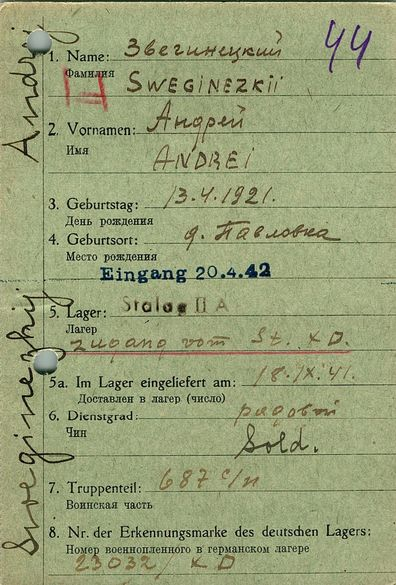 Andrej
Sweginezkij
44
1. Name: Звегинецкий
Фамилия
SWEGINEZKII
2. Vornamen: Андрей
Имя
ANDREI
3. Geburtstag: 13.4.1921.
День рождения
4. Geburtsort: д. Павловка
Место рождения
Eingang 20.4.42
5. Lager: Stalag II A
Лагер
zugang vom St. X D.
5a. Im Lager eingeliefert am: 18.IX.41.
Доставлен в лагер (число)
6. Dienstgrad: рядовой
Чин
Sold.
7. Truppenteil: 687 с/п
Воинская часть
8. Nr. der Erkennungsmarke des deutschen Lagers:
Номер военнопленного в германском лагере
23032/ X D